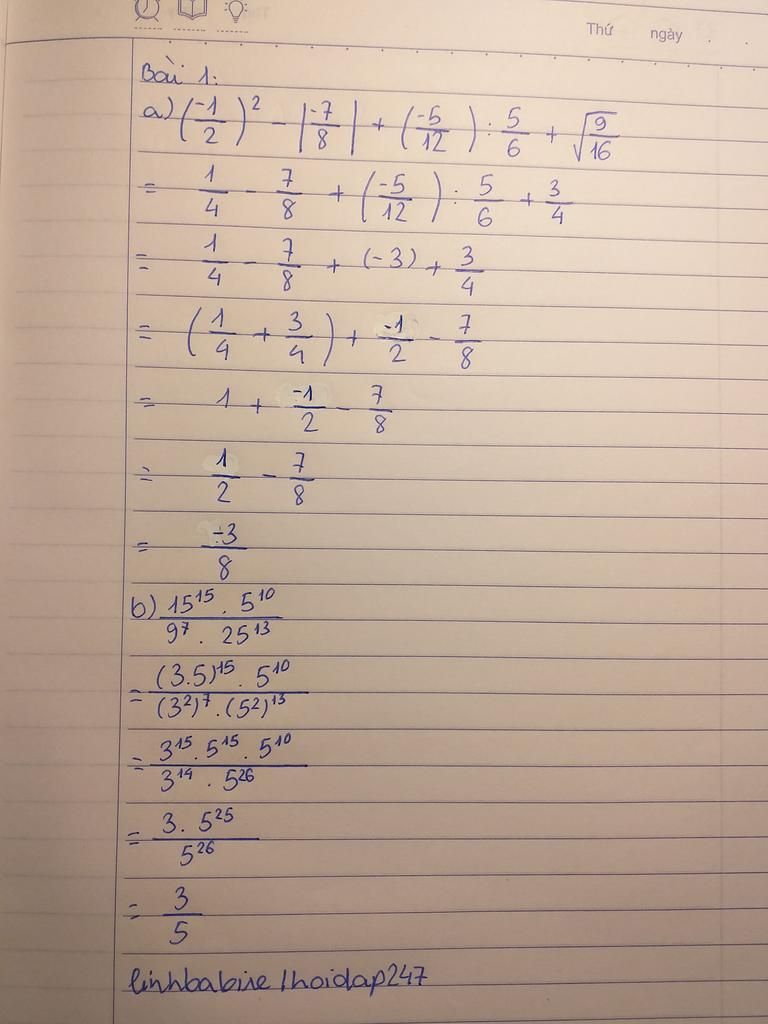 Thứ ngày
Bài 1:
a) (-1/2)² - |-7/8| + (-5/12) : 5/6 + √(9/16)
= 1/4 - 7/8 + (-5/12) : 5/6 + 3/4
= 1/4 - 7/8 + (-3) + 3/4
= (1/4 + 3/4) + -1/2 - 7/8
= 1 + -1/2 - 7/8
= 1/2 - 7/8
= -3/8
b) 15¹⁵ . 5¹⁰ / 9⁷ . 25¹³
= (3.5)¹⁵ . 5¹⁰ / (3²)⁷ . (5²)¹³
= 3¹⁵ . 5¹⁵ . 5¹⁰ / 3¹⁴ . 5²⁶
= 3 . 5²⁵ / 5²⁶
= 3/5
linhbabine/hoidap247